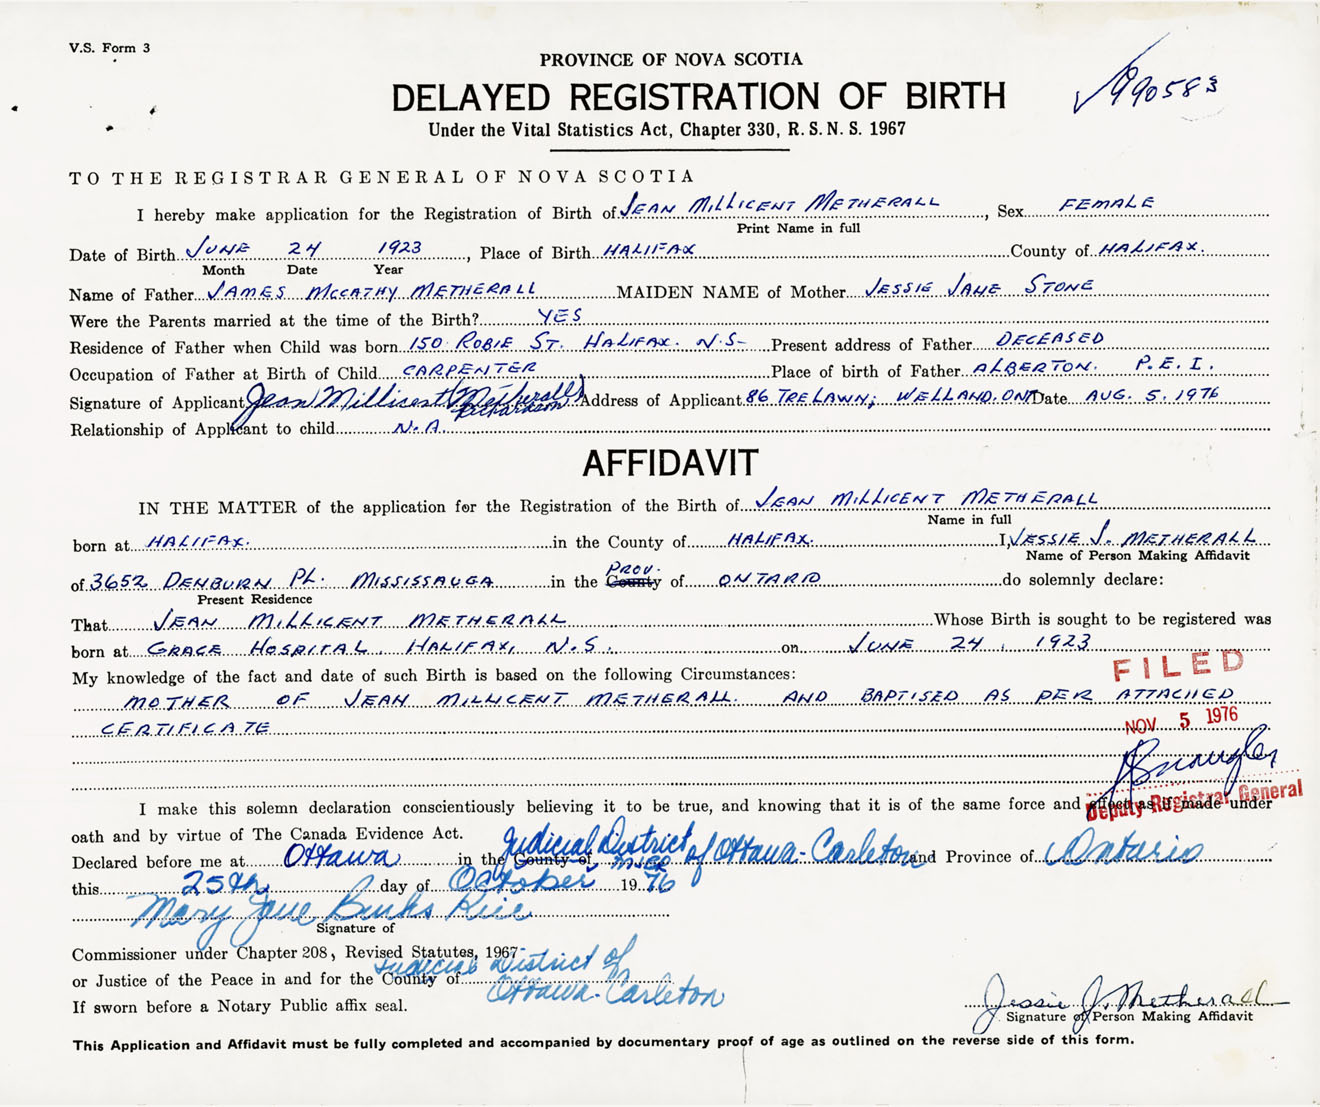 V.S. Form 3
PROVINCE OF NOVA SCOTIA
DELAYED REGISTRATION OF BIRTH
990583
Under the Vital Statistics Act, Chapter 330, R.S.N.S. 1967
TO THE REGISTRAR GENERAL OF NOVA SCOTIA
I hereby make application for the Registration of Birth of JEAN MILLICENT METHERALL, Sex FEMALE
Print Name in full
Date of Birth JUNE 24 1923, Place of Birth HALIFAX County of HALIFAX.
Month Date Year
Name of Father JAMES MCCATHY METHERALL MAIDEN NAME of Mother JESSIE JANE STONE
Were the Parents married at the time of the Birth? YES
Residence of Father when Child was born 150 ROBIE ST. HALIFAX. N.S- Present address of Father DECEASED
Occupation of Father at Birth of Child CARPENTER Place of birth of Father ALBERTON. P.E.I.
Signature of Applicant Jean Millicent (Metherall) Richardson Address of Applicant 86 TRELAWN, WELLAND. ONT Date AUG. 5. 1976
Relationship of Applicant to child N.A.
AFFIDAVIT
IN THE MATTER of the application for the Registration of the Birth of JEAN MILLICENT METHERALL
Name in full
born at HALIFAX. in the County of HALIFAX. I, JESSIE J. METHERALL
Name of Person Making Affidavit
of 3652 DENBURN PL. MISSISSAUGA in the County PROV. of ONTARIO do solemnly declare:
Present Residence
That JEAN MILLICENT METHERALL Whose Birth is sought to be registered was
born at GRACE HOSPITAL, HALIFAX, N.S. on JUNE 24, 1923
FILED
My knowledge of the fact and date of such Birth is based on the following Circumstances:
MOTHER OF JEAN MILLICENT METHERALL. AND BAPTISED AS PER ATTACHED
CERTIFICATE
NOV 5 1976
I make this solemn declaration conscientiously believing it to be true, and knowing that it is of the same force and effect as if made under
Deputy Registrar General
oath and by virtue of The Canada Evidence Act.
Declared before me at Ottawa in the County of Judicial District of Ottawa-Carleton and Province of Ontario
this 25th day of October 1976
Mary Jane Binks Rice
Signature of
Commissioner under Chapter 208, Revised Statutes, 1967
or Justice of the Peace in and for the County of Judicial District of Ottawa-Carleton
If sworn before a Notary Public affix seal.
Jessie J. Metherall
Signature of Person Making Affidavit
This Application and Affidavit must be fully completed and accompanied by documentary proof of age as outlined on the reverse side of this form.